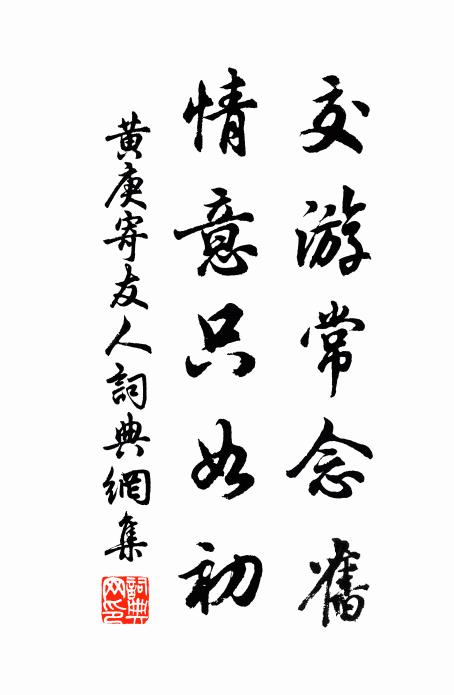 交游常念舊
情意只如初
黄庚寄友人詞典網集
詞典網印